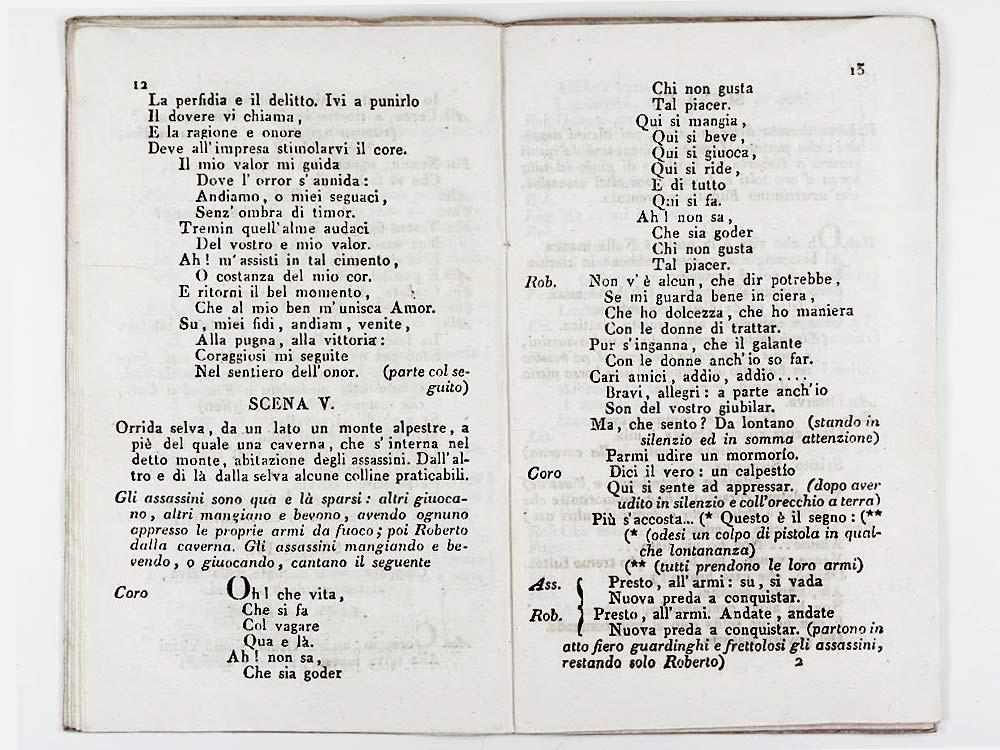 12
La perfidia e il delitto. Ivi a punirlo
Il dovere vi chiama,
E la ragione e onore
Deve all'impresa stimolarvi il core.
Il mio valor mi guida
Dove l'orror s'annida:
Andiamo, o miei seguaci,
Senz'ombra di timor.
Tremin quell'alme audaci
Del vostro e mio valor.
Ah! m'assisti in tal cimento,
O costanza del mio cor.
E ritorni il bel momento,
Che al mio ben m'unisca Amor.
Su, miei fidi, andiam, venite,
Alla pugna, alla vittoria:
Coraggiosi mi seguite
Nel sentiero dell'onor. (parte col se-
guito)
SCENA V.
Orrida selva, da un lato un monte alpestre, a
piè del quale una caverna, che s'interna nel
detto monte, abitazione degli assassini. Dall'al-
tro e di là dalla selva alcune colline praticabili.
Gli assassini sono qua e là sparsi: altri giuoca-
no, altri mangiano e bevono, avendo ognuno
appresso le proprie armi da fuoco; poi Roberto
dalla caverna. Gli assassini mangiando e be-
vendo, o giuocando, cantano il seguente
Coro Oh! che vita,
Che si fa
Col vagare
Qua e là.
Ah! non sa,
Che sia goder
13
Chi non gusta
Tal piacer.
Qui si mangia,
Qui si beve,
Qui si giuoca,
Qui si ride,
E di tutto
Qui si fa.
Ah! non sa,
Che sia goder
Chi non gusta
Tal piacer.
Rob. Non v'è alcun, che dir potrebbe,
Se mi guarda bene in ciera,
Che ho dolcezza, che ho maniera
Con le donne di trattar.
Pur s'inganna, che il galante
Con le donne anch'io so far.
Cari amici, addio, addio.....
Bravi, allegri: a parte anch'io
Son del vostro giubilar.
Ma, che sento? Da lontano (stando in
silenzio ed in somma attenzione)
Parmi udire un mormorio.
Coro Dici il vero: un calpestio
Qui si sente ad appressar. (dopo aver
udito in silenzio e coll'orecchio a terra)
Più s'accosta... (* Questo è il segno: (**
(* (odesi un colpo di pistola in qual-
che lontananza)
(** (tutti prendono le loro armi)
Ass. { Presto, all'armi: su, si vada
Nuova preda a conquistar.
Rob. Presto, all'armi. Andate, andate
Nuova preda a conquistar. (partono in
atto fiero guardinghi e frettolosi gli assassini,
restando solo Roberto) 2